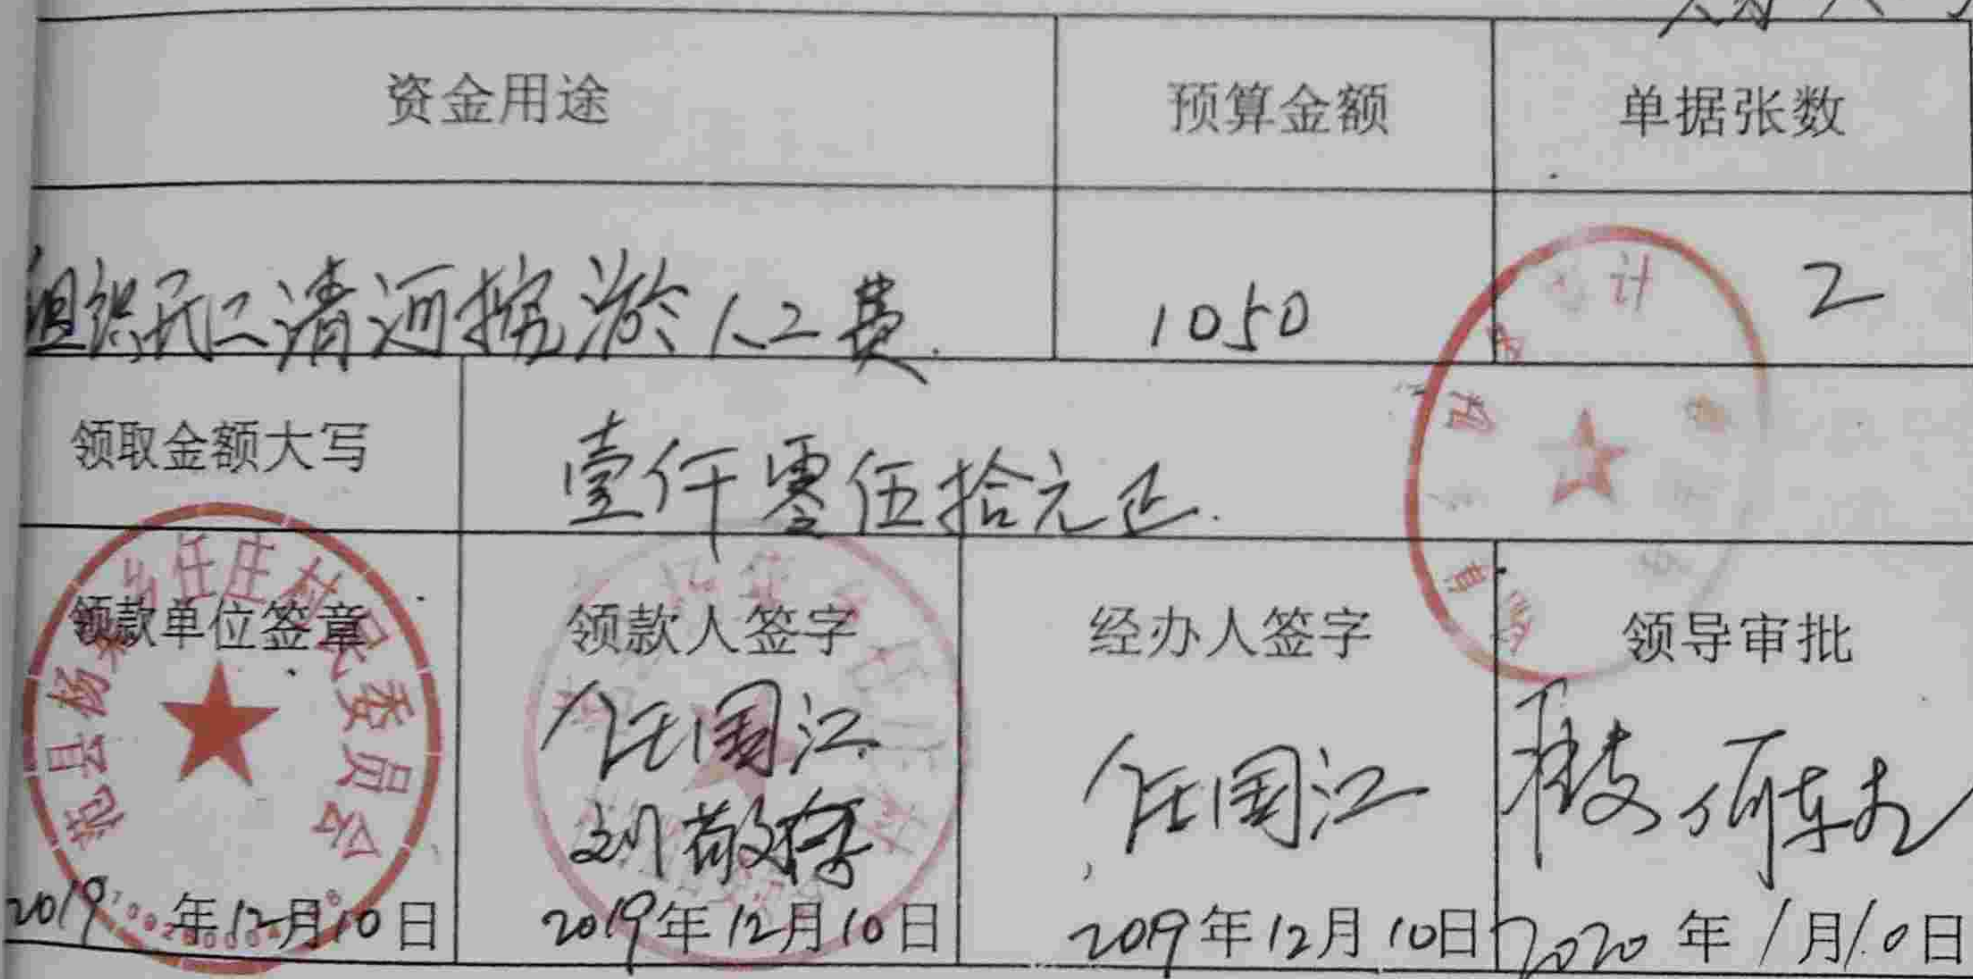 资金用途 预算金额 单据张数
组织民工清河挖淤人工费. 1050 2
领取金额大写 壹仟零伍拾元正.
领款单位签章 领款人签字 经办人签字 领导审批
范县杨集乡任庄村民委员会
任国江 任国江
刘敬
2019年12月10日 2019年12月10日 2019年12月10日 2020年1月10日